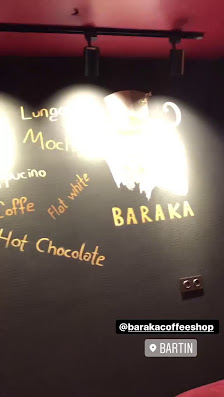 Lungo
Mocha
Flat white
Hot Chocolate
BARAKA
@barakacoffeeshop
BARTIN